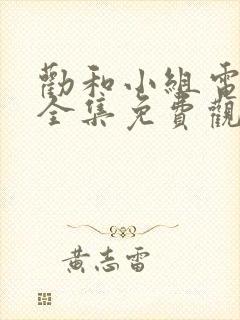 勸和小組電
全集免費觀
黃志雷